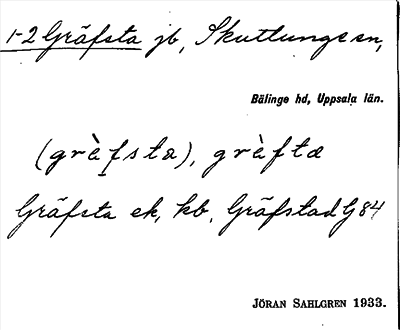 1-2 Gräfsta jb, Skuttunge sn,
Bälinge hd, Uppsala län.
(grὲfsta), grὲfta
Gräfsta ek, kb, Gräfstad G 84
JÖRAN SAHLGREN 1933.